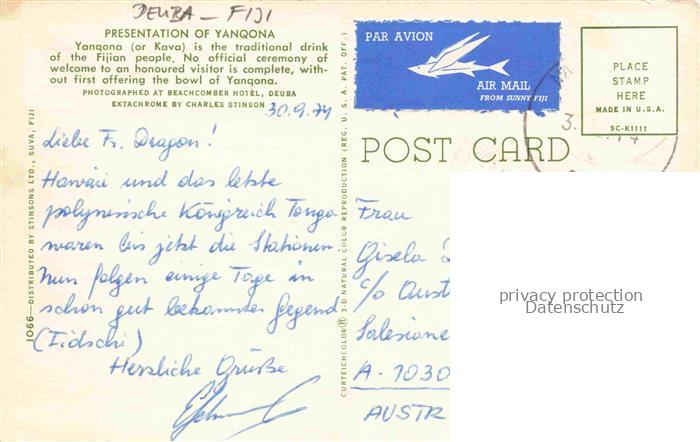 DEUBA - FIJI
PRESENTATION OF YANQONA
Yanqona (or Kava) is the traditional drink
of the Fijian people. No official ceremony of
welcome to an honoured visitor is complete, with-
out first offering the bowl of Yanqona.
PHOTOGRAPHED AT BEACHCOMBER HOTEL, DEUBA
EKTACHROME BY CHARLES STINSON
30.9.74
Liebe Fr. Dragon!
Hawaii und das letzte
polynesische Königreich Tonga
waren bis jetzt die Stationen.
Nun folgen einige Tage in
schon gut bekannter Gegend
(Fidschi)
Herzliche Grüße
1066—DISTRIBUTED BY STINSONS LTD., SUVA, FIJI
CURTEICHCOLOR® 3-D NATURAL COLOR REPRODUCTION (REG. U.S.A. PAT. OFF.)
PAR AVION
AIR MAIL
FROM SUNNY FIJI
PLACE
STAMP
HERE
MADE IN U.S.A.
9C-K1111
POST CARD
Frau
Gisela
c/o Aust
Salesiane
A-1030
AUSTR
privacy protection
Datenschutz